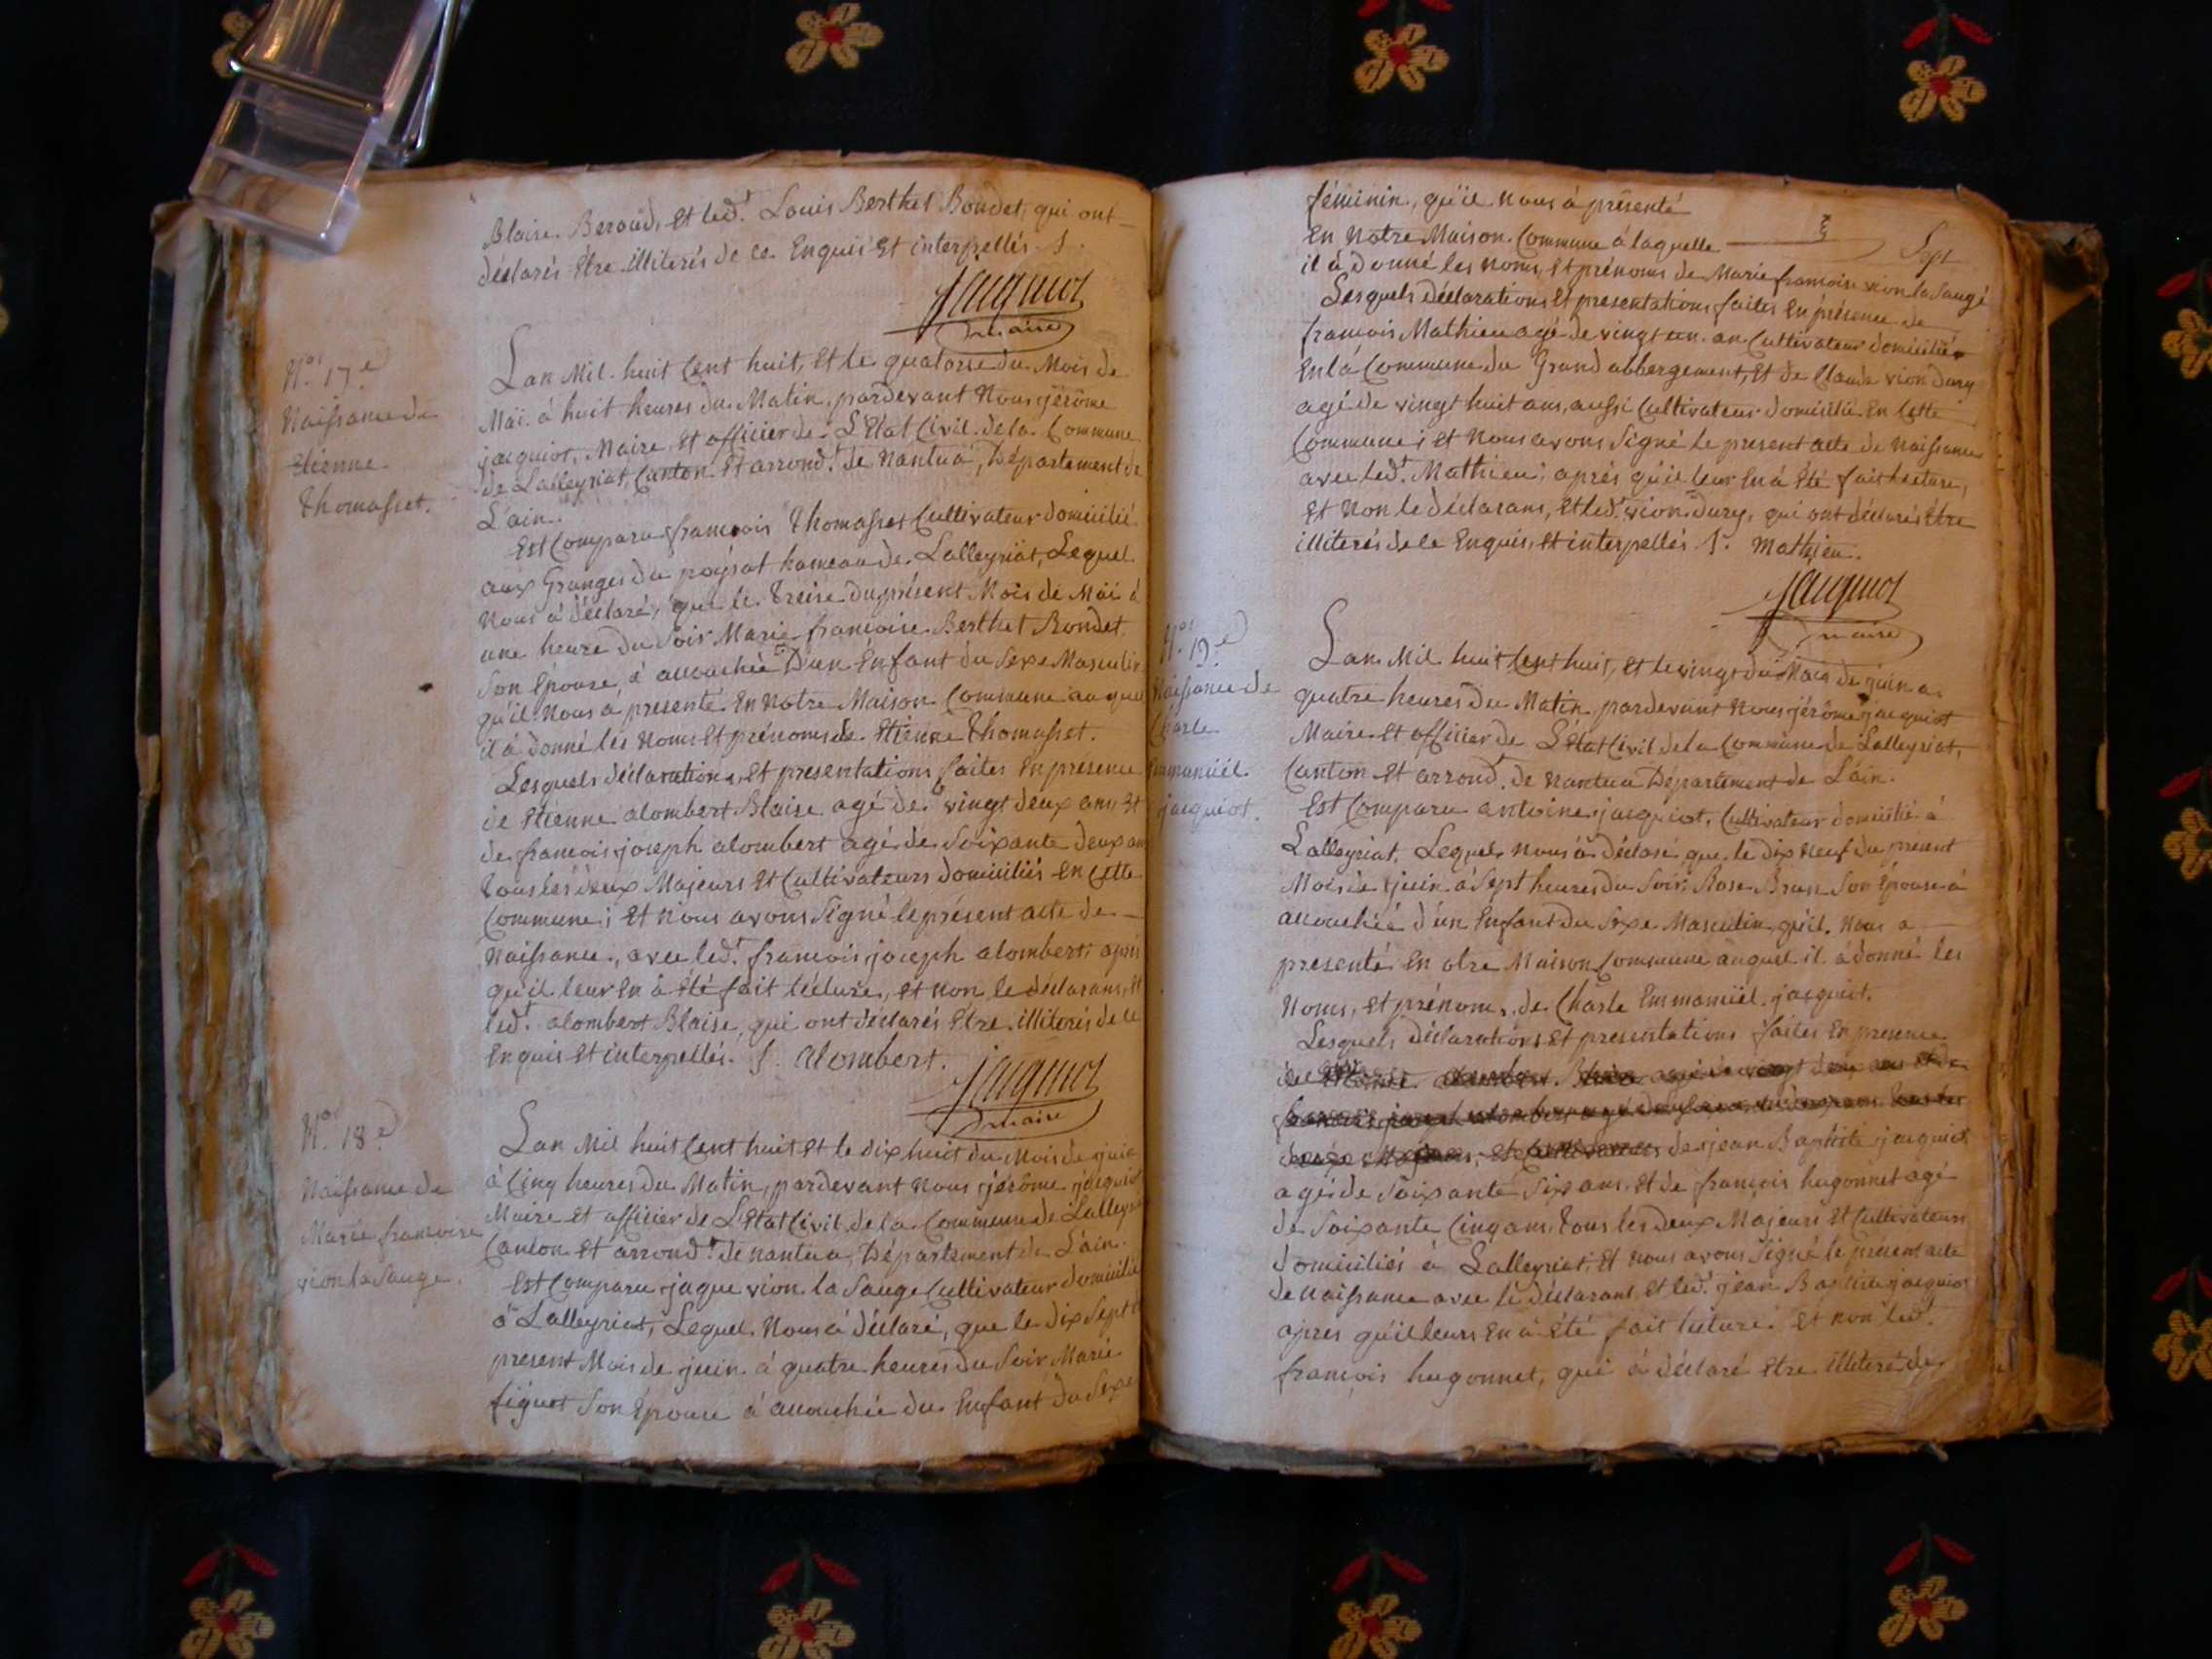 Blaise Beraud, et led.t Louis Berthet Bondet, qui ont
déclarés être illiterés de ce Enquis et interpellés. S.
Jacquiot
maire
N.o 17.e
Naissance de
Etienne
Thomasset.
Lan Mil huit Cent huit, et le quatorse du Mois de
Maï à huit heures du Matin, pardevant Nous jérôme
jacquiot, Maire et officier de L'Etat Civil de la Commune
de Lalleyriat, Canton et arrond.t de Nantua, Département de
L'ain.
Est Comparu françois Thomasset Cultivateur domicilié
aux Granges du poysat hameau de Lalleyriat, Lequel
Nous à déclaré, que le treise du présent Mois de Mai à
une heure du Soir Marie françoise Berthet Bondet
Son Epouse, à accouchée D'un Enfant du Sexe Masculin
qu'il Nous a presenté En Notre Maison Commune auquel
il à donné les Noms et prénoms de Etienne Thomasset.
Lesquels déclarations, et presentations faites En presence
de Etienne alombert Blaise agé de vingt deux ans et
de françois joseph alombert agé de Soixante deux ans
tous les deux Majeurs et Cultivateurs domiciliés en Cette
Commune; et Nous avons Signé le présent acte de
Naissance, avec led.t françois joseph alombert; après
qu'il leur en à été fait lécture, et non le déclarans, et
led.t alombert Blaise, qui ont déclarés Etre illiterés de ce
Enquis et interpellés. S. alombert.
Jacquiot
maire
N.o 18.e
Naissance de
Marie francoise
vion la Sauge.
Lan Mil huit Cent huit et le dix huit du Mois de juin
à Cinq heures du Matin, pardevant Nous jérôme jacquiot
Maire et officier de L'Etat Civil de la Commune de Lalleyriat
Canton et arrond.t de Nantua, Département de L'ain.
Est Comparu jaque vion la Sauge Cultivateur domicilié
à Lalleyriat, Lequel Nous à déclaré, que le dix Sept
present Mois de juin à quatre heures du Soir Marie
figuet Son Epouse à accouchée du Enfant du Sexe
féminin, qu'il Nous à présenté
En Notre Maison Commune à laquelle
Sept
il à donné les Noms, et prénoms de Marie francoise vion la Saugé
Lesquels déclarations et presentations faites En présence de
françois Mathieu agé de vingt un an Cultivateur domicilié
En la Commune du Grand abbergement, et de Claude vion Dury
agé de vingt huit ans, aussi Cultivateur domicilié En Cette
Commune; et Nous avons Signé le present acte de Naissance
avec led.t Mathieu; après qu'il leur en à été fait lecture,
Et Non le déclarans, et led.t vion Dury, qui ont déclarés être
illiterés de ce Enquis, et interpellés S. Mathieu.
Jacquiot
maire
N.o 19.e
Naissance de
Charle
Emmanüél
jacquiot.
Lan Mil huit Cent huit, et le vingt du Mois de juin a
quatre heures du Matin pardevant Nous jérôme jacquiot
Maire et officier de L'Etat Civil de la Commune de Lalleyriat,
Canton et arrond.t de Nantua Département de L'ain.
Est Comparu antoine jacquiot, Cultivateur domicilié à
Lalleyriat. Lequel Nous à déclaré, que le dix neuf du present
Mois de juin à Sept heures du Soir, Rose Brun Son Epouse à
accouchée d'un Enfant du Sexe Masculin qu'il Nous a
presenté En otre Maison Commune auquel il à donné les
Noms, et prénoms de Charle Emmanüél jacquiot.
Lesquels déclarations et presentations faites En presence
de Etienne alombert Blaise agé de vingt deux ans et de
françois joseph alombert agé de Soixante deux ans tous les
deux Majeurs, et Cultivateurs de jean Baptiste jacquiot
agé de Soixante Six ans, et de françois hugonnet agé
de Soixante Cinq ans tous les deux Majeurs et Cultivateurs
domiciliés à Lalleyriat, et Nous avons Signé le présent acte
de Naissance avec le déclarant, et led.t jean Baptiste jacquiot
apres qu'il leurs en à été fait lecture. et non led.t
françois hugonnet, qui à déclaré etre illiteré de